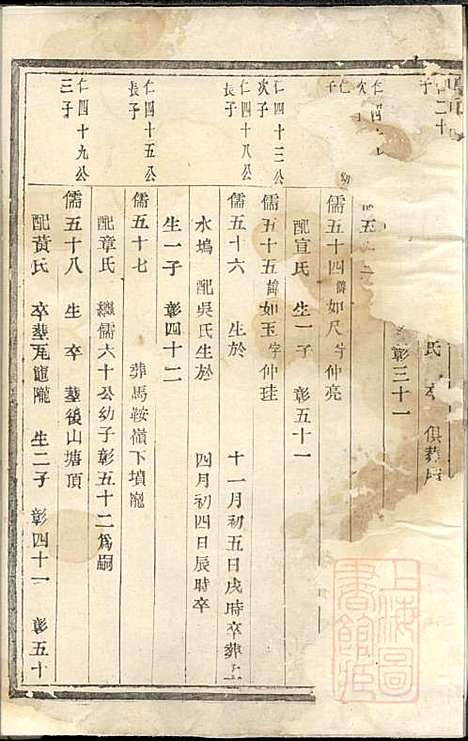 二十
子
氏 卒 俱葬
彰三十一
仁四
次子
五
仁
子
儒五十四諱如尺字仲亮
配宣氏 生一子 彰五十一
仁四十三公
次子
儒五十五諱如玉字仲珪
仁四十八公
長子
儒五十六 生於 十一月初五日戌時卒葬
水塢 配吳氏生於 四月初四日辰時卒
生一子 彰四十二
仁四十五公
長子
儒五十七 葬馬鞍嶺下墳隴
配章氏 繼儒六十公幼子彰五十二爲嗣
仁四十九公
三子
儒五十八 生 卒 墓後山塘頂
配黃氏 卒墓尾龍隴 生二子 彰四十一 彰五十
上海圖書館藏